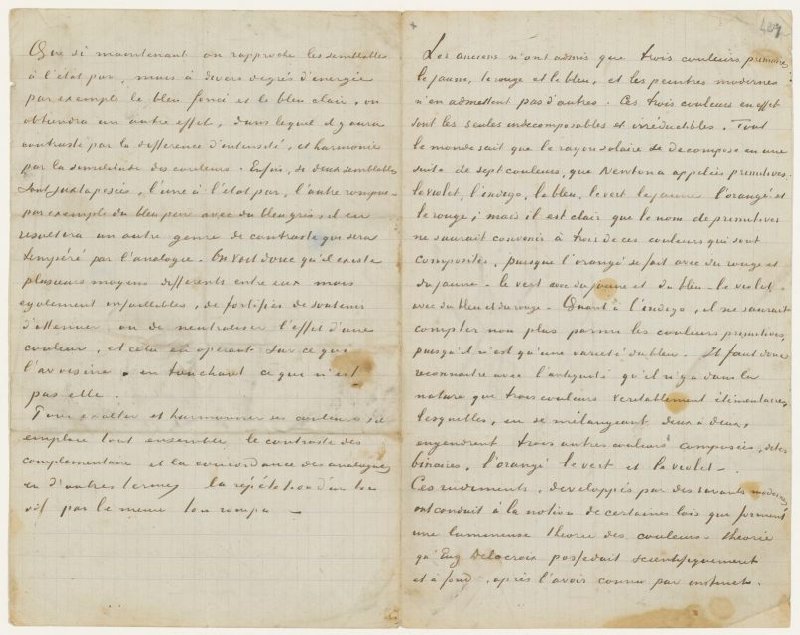 Que si maintenant on rapproche les semblables
à l'état pur, mais à divers degrés d'énergie
par exemple le bleu foncé et le bleu clair, on
obtiendra un autre effet, dans lequel il y aura
contraste par la différence d'intensité, et harmonie
par la similitude des couleurs. Enfin, si deux semblables
sont juxtaposées, l'une à l'état pur, l'autre rompue
par exemple du bleu pur avec du bleu gris, il en
resultera un autre genre de contraste qui sera
tempéré par l'analogie. On voit donc qu'il existe
plusieurs moyens differents entre eux mais
egalement infaillibles, de fortifier de soutenir
d'attenuer ou de neutraliser l'effet d'une
couleur, et cela en operant sur ce qui
l'avoisine, en touchant ce qui n'est
pas elle.
Pour exalter et harmoniser ses couleurs il
emploie tout ensemble le contraste des
complementaire et la concordance des analogues
en d'autres termes la répétition d'un ton
vif par le meme ton rompu —
407
Les anciens n'ont admis que trois couleurs primaires
le jaune, le rouge et le bleu, et les peintres modernes
n'en admettent pas d'autres. Ces trois couleurs en effet
sont les seules indecomposables et irréductibles. Tout
le monde sait que le rayon solaire se decompose en une
suite de sept couleurs, que Newton a appelées primitives
le violet, l'indigo, le bleu, le vert le jaune l'orangé et
le rouge; mais il est clair que le nom de primitives
ne saurait convenir à trois de ces couleurs qui sont
composites, puisque l'orangé se fait avec du rouge et
du jaune – le vert avec du jaune et du bleu – le violet
avec du bleu et du rouge – Quant à l'indigo, il ne saurait
compter non plus parmi les couleurs primitives,
puisqu'il n'est qu'une varieté du bleu – Il faut donc
reconnaitre avec l'antiquité qu'il n'y a dans la
nature que trois couleurs veritablement élémentaires,
lesquelles, en se mélangeant deux à deux,
engendrent trois autres couleurs composées, dites
binaires, l'orangé le vert et le violet –
Ces rudiments, developpés par des savants modernes
ont conduit à la notion de certaines lois qui forment
une lumineuse theorie des couleurs – theorie
qu'Eug Delacroix possedait scientifiquement
et à fond, après l'avoir connu par instinct.